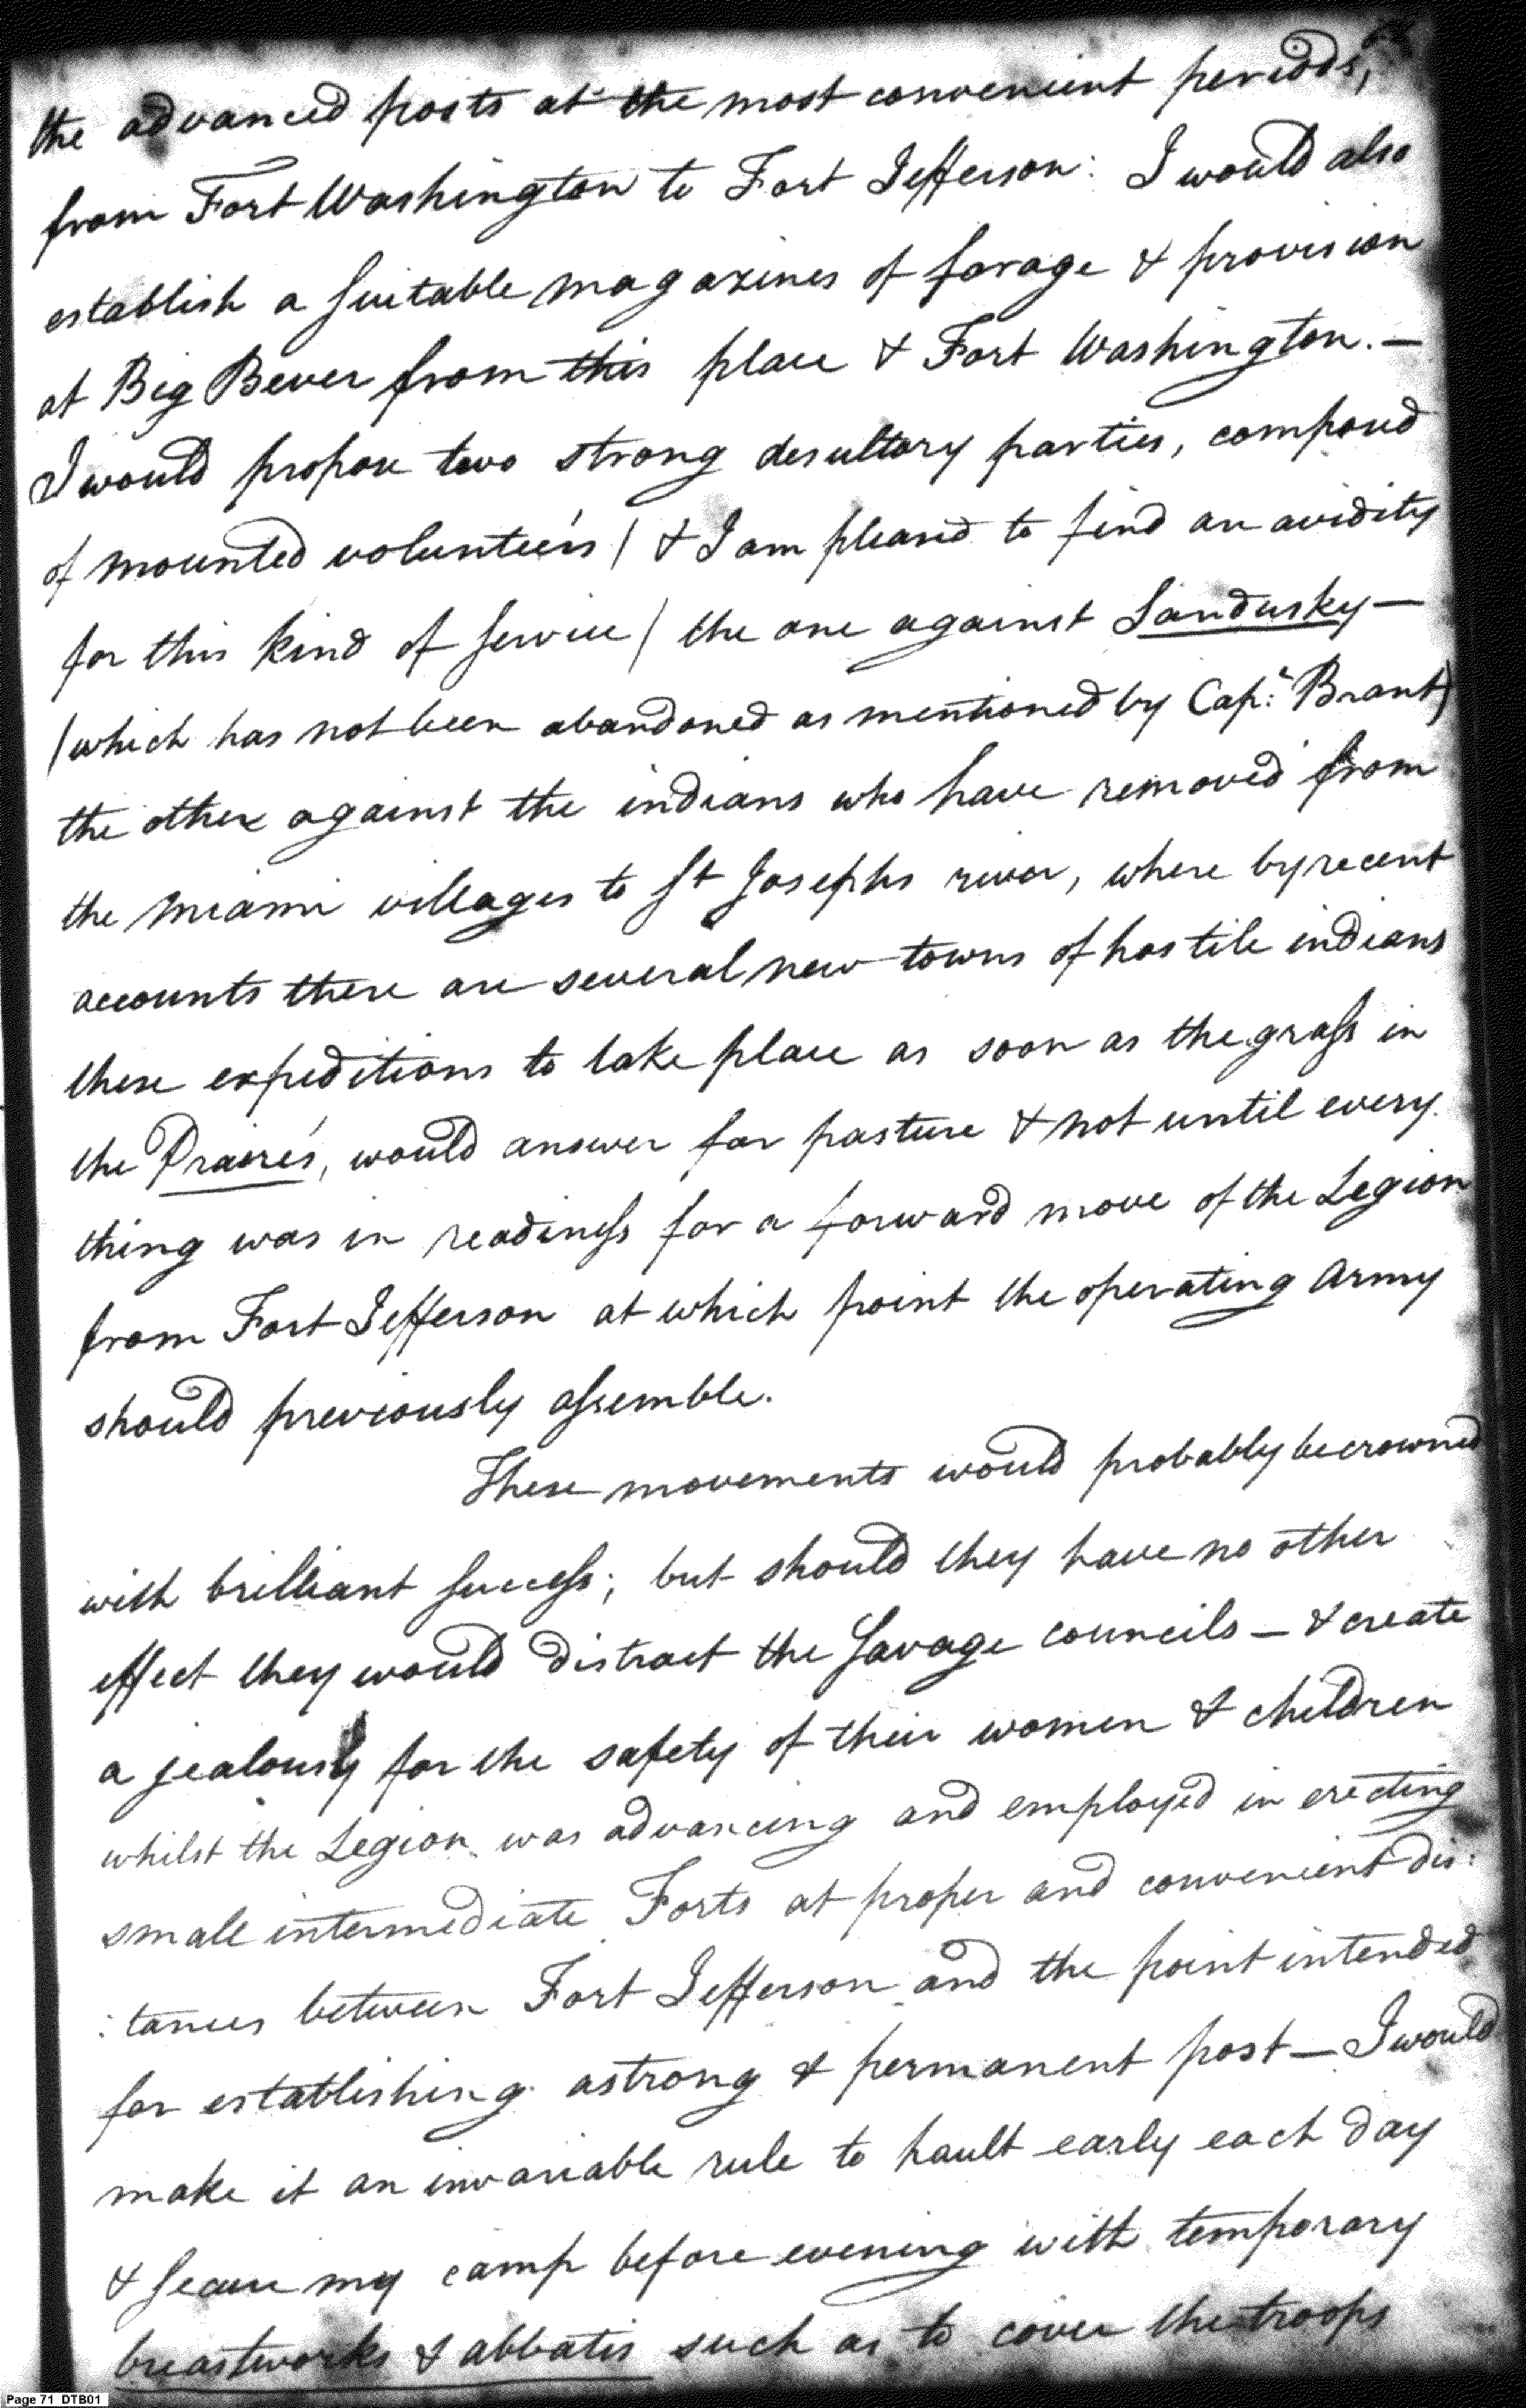 the advanced posts at the most convenient periods,
from Fort Washington to Fort Jefferson: I would also
establish a suitable magazines of forage & provision
at Big Bever from this place & Fort Washington. —
I would propose two strong desultory parties, composed
of mounted volunteers / & I am pleased to find an avidity
for this kind of service / the one against Sandusky —
(which has not been abandoned as mentioned by Capt. Brant)
the other against the indians who have removed from
the Miami villages to St Josephs river, where by recent
accounts there are several new towns of hostile indians
these expeditions to take place as soon as the grass in
the Praires, would answer for pasture & not until every
thing was in readiness for a forward move of the Legion
from Fort Jefferson at which point the operating Army
should previously assemble.
These movements would probably be crowned
with brilliant success; but should they have no other
effect they would distract the Savage councils — & create
a jealousy for the safety of their women & children
whilst the Legion was advancing and employed in erecting
small intermediate Forts at proper and convenient dis:
:tances between Fort Jefferson and the point intended
for establishing a strong & permanent post — I would
make it an invariable rule to hault early each day
& secure my camp before evening with temporary
breastworks & abbatis such as to cover the troops
Page 71 DTB01